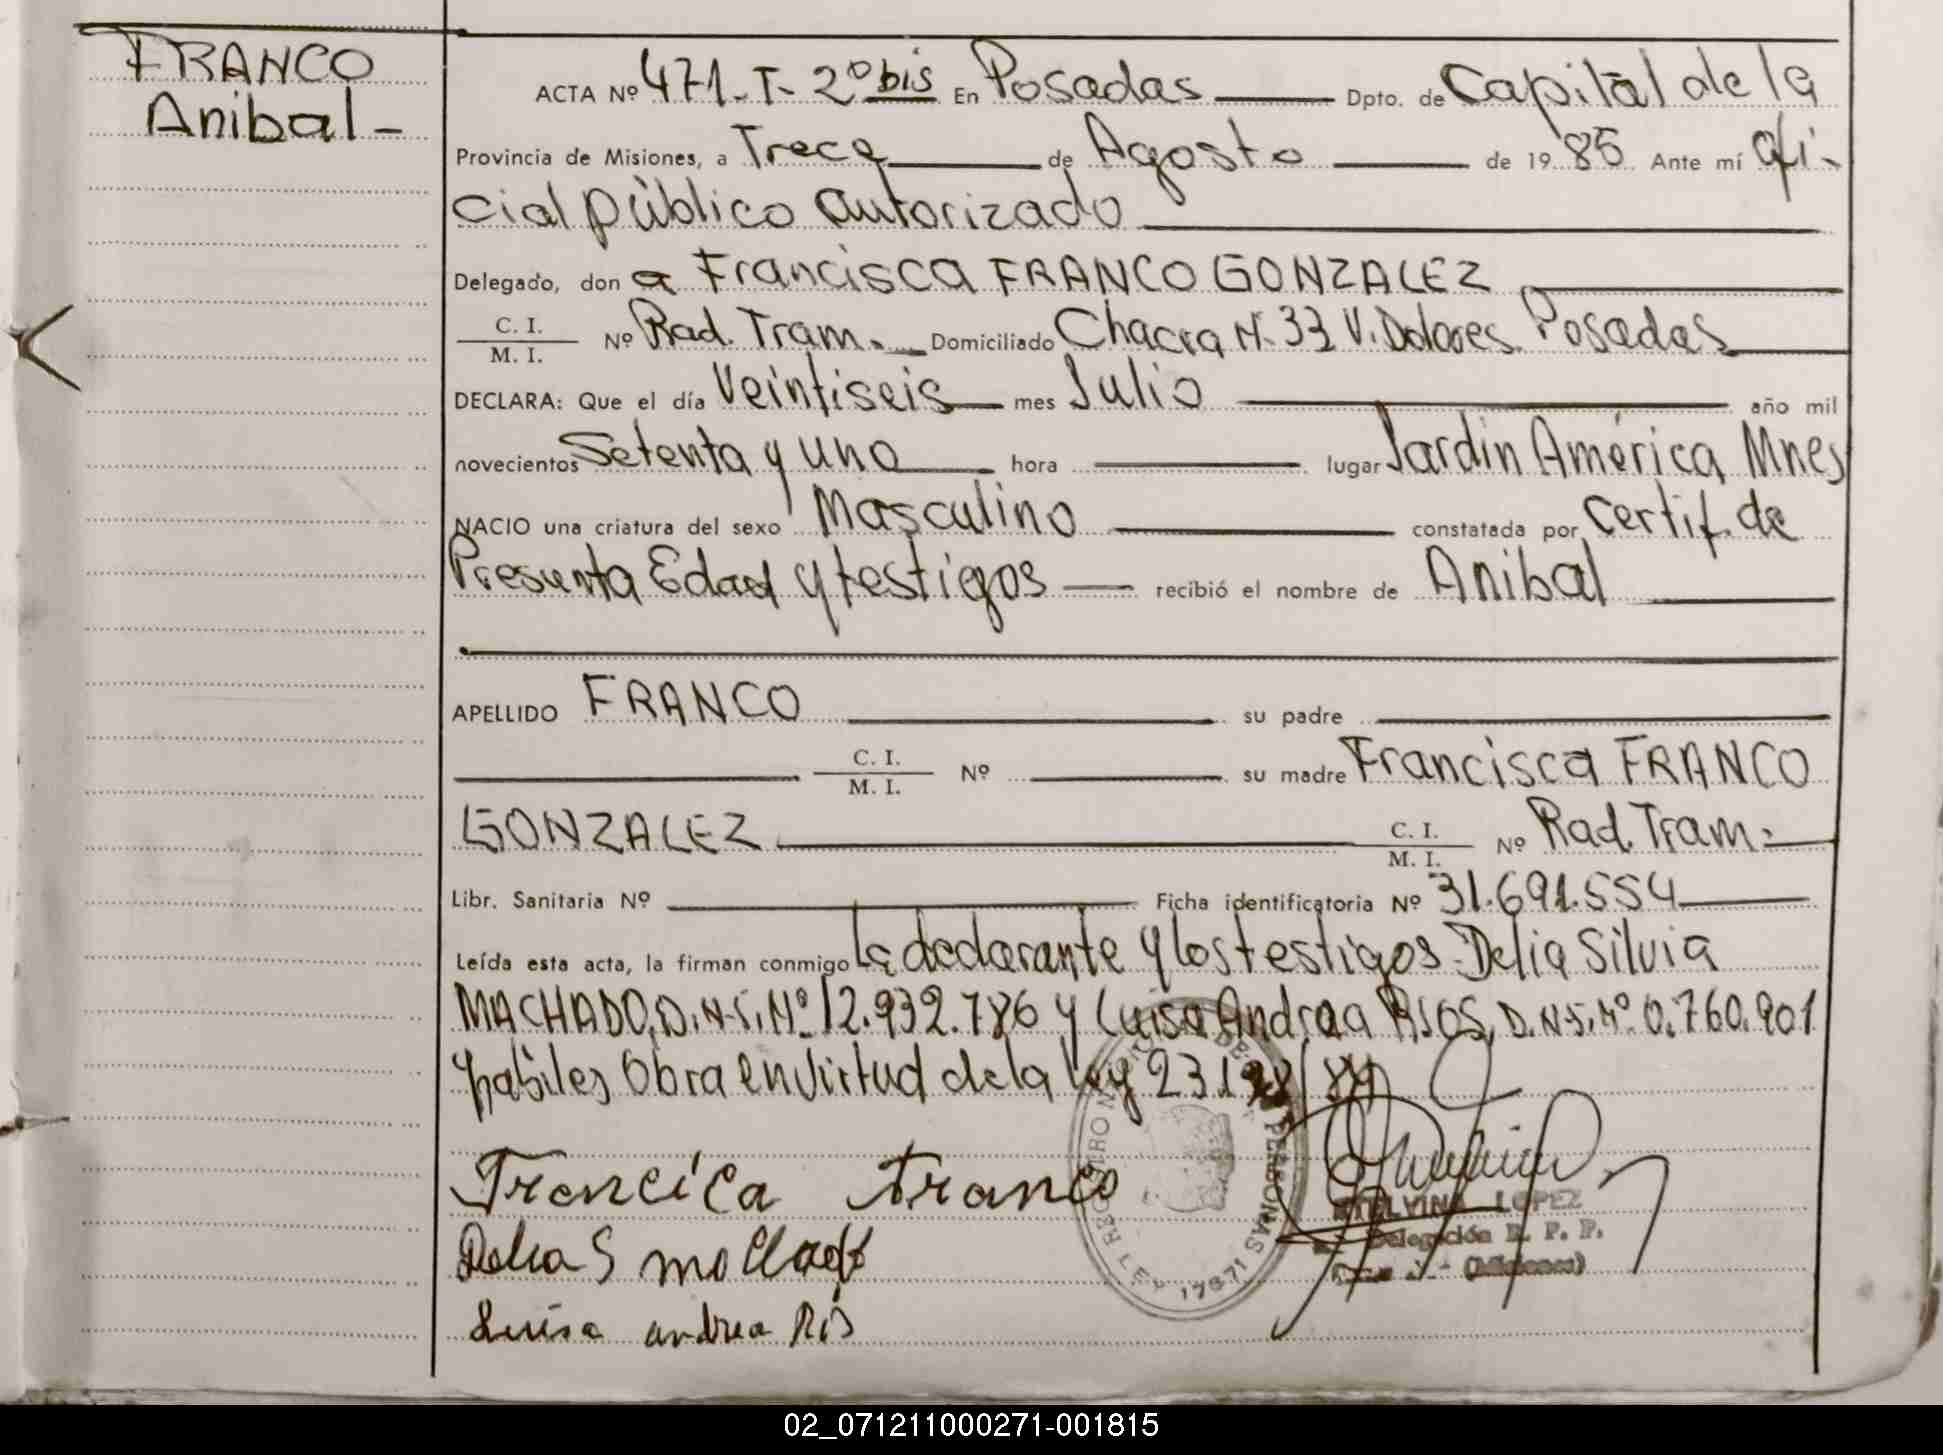 FRANCO
Anibal -
ACTA Nº 471-T-2º bis En Posadas Dpto. de Capital de la
Provincia de Misiones, a Trece de Agosto de 1985 Ante mí Ofi-
cial público autorizado
Delegado, don a Francisca FRANCO GONZALEZ
C. I.
M. I. Nº Rad. Tram. Domiciliado Chacra N. 33 V. Dolores Posadas
DECLARA: Que el día Veintiseis mes Julio año mil
novecientos Setenta y uno hora lugar Jardin América, Mnes
NACIO una criatura del sexo Masculino constatada por Certif. de
Presunta Edad y testigos recibió el nombre de Anibal
APELLIDO FRANCO su padre
C. I.
M. I. Nº su madre Francisca FRANCO
GONZALEZ C. I.
M. I. Nº Rad. Tram.
Libr. Sanitaria Nº Ficha identificatoria Nº 31.691.554
Leída esta acta, la firman conmigo la declarante y los testigos Delia Silvia
MACHADO, D.N.I. Nº 12.932.786 y Luisa Andrea RIOS, D.N.I. Nº 0.760.901
habiles Obra en virtud de la ley
Francica Franco
Delia S
Luisa andrea Rios
REGISTRO DE PERSONAS
LEY 17671
LOPEZ
Delegación R. P. P.
(Misiones)
02_071211000271-001815